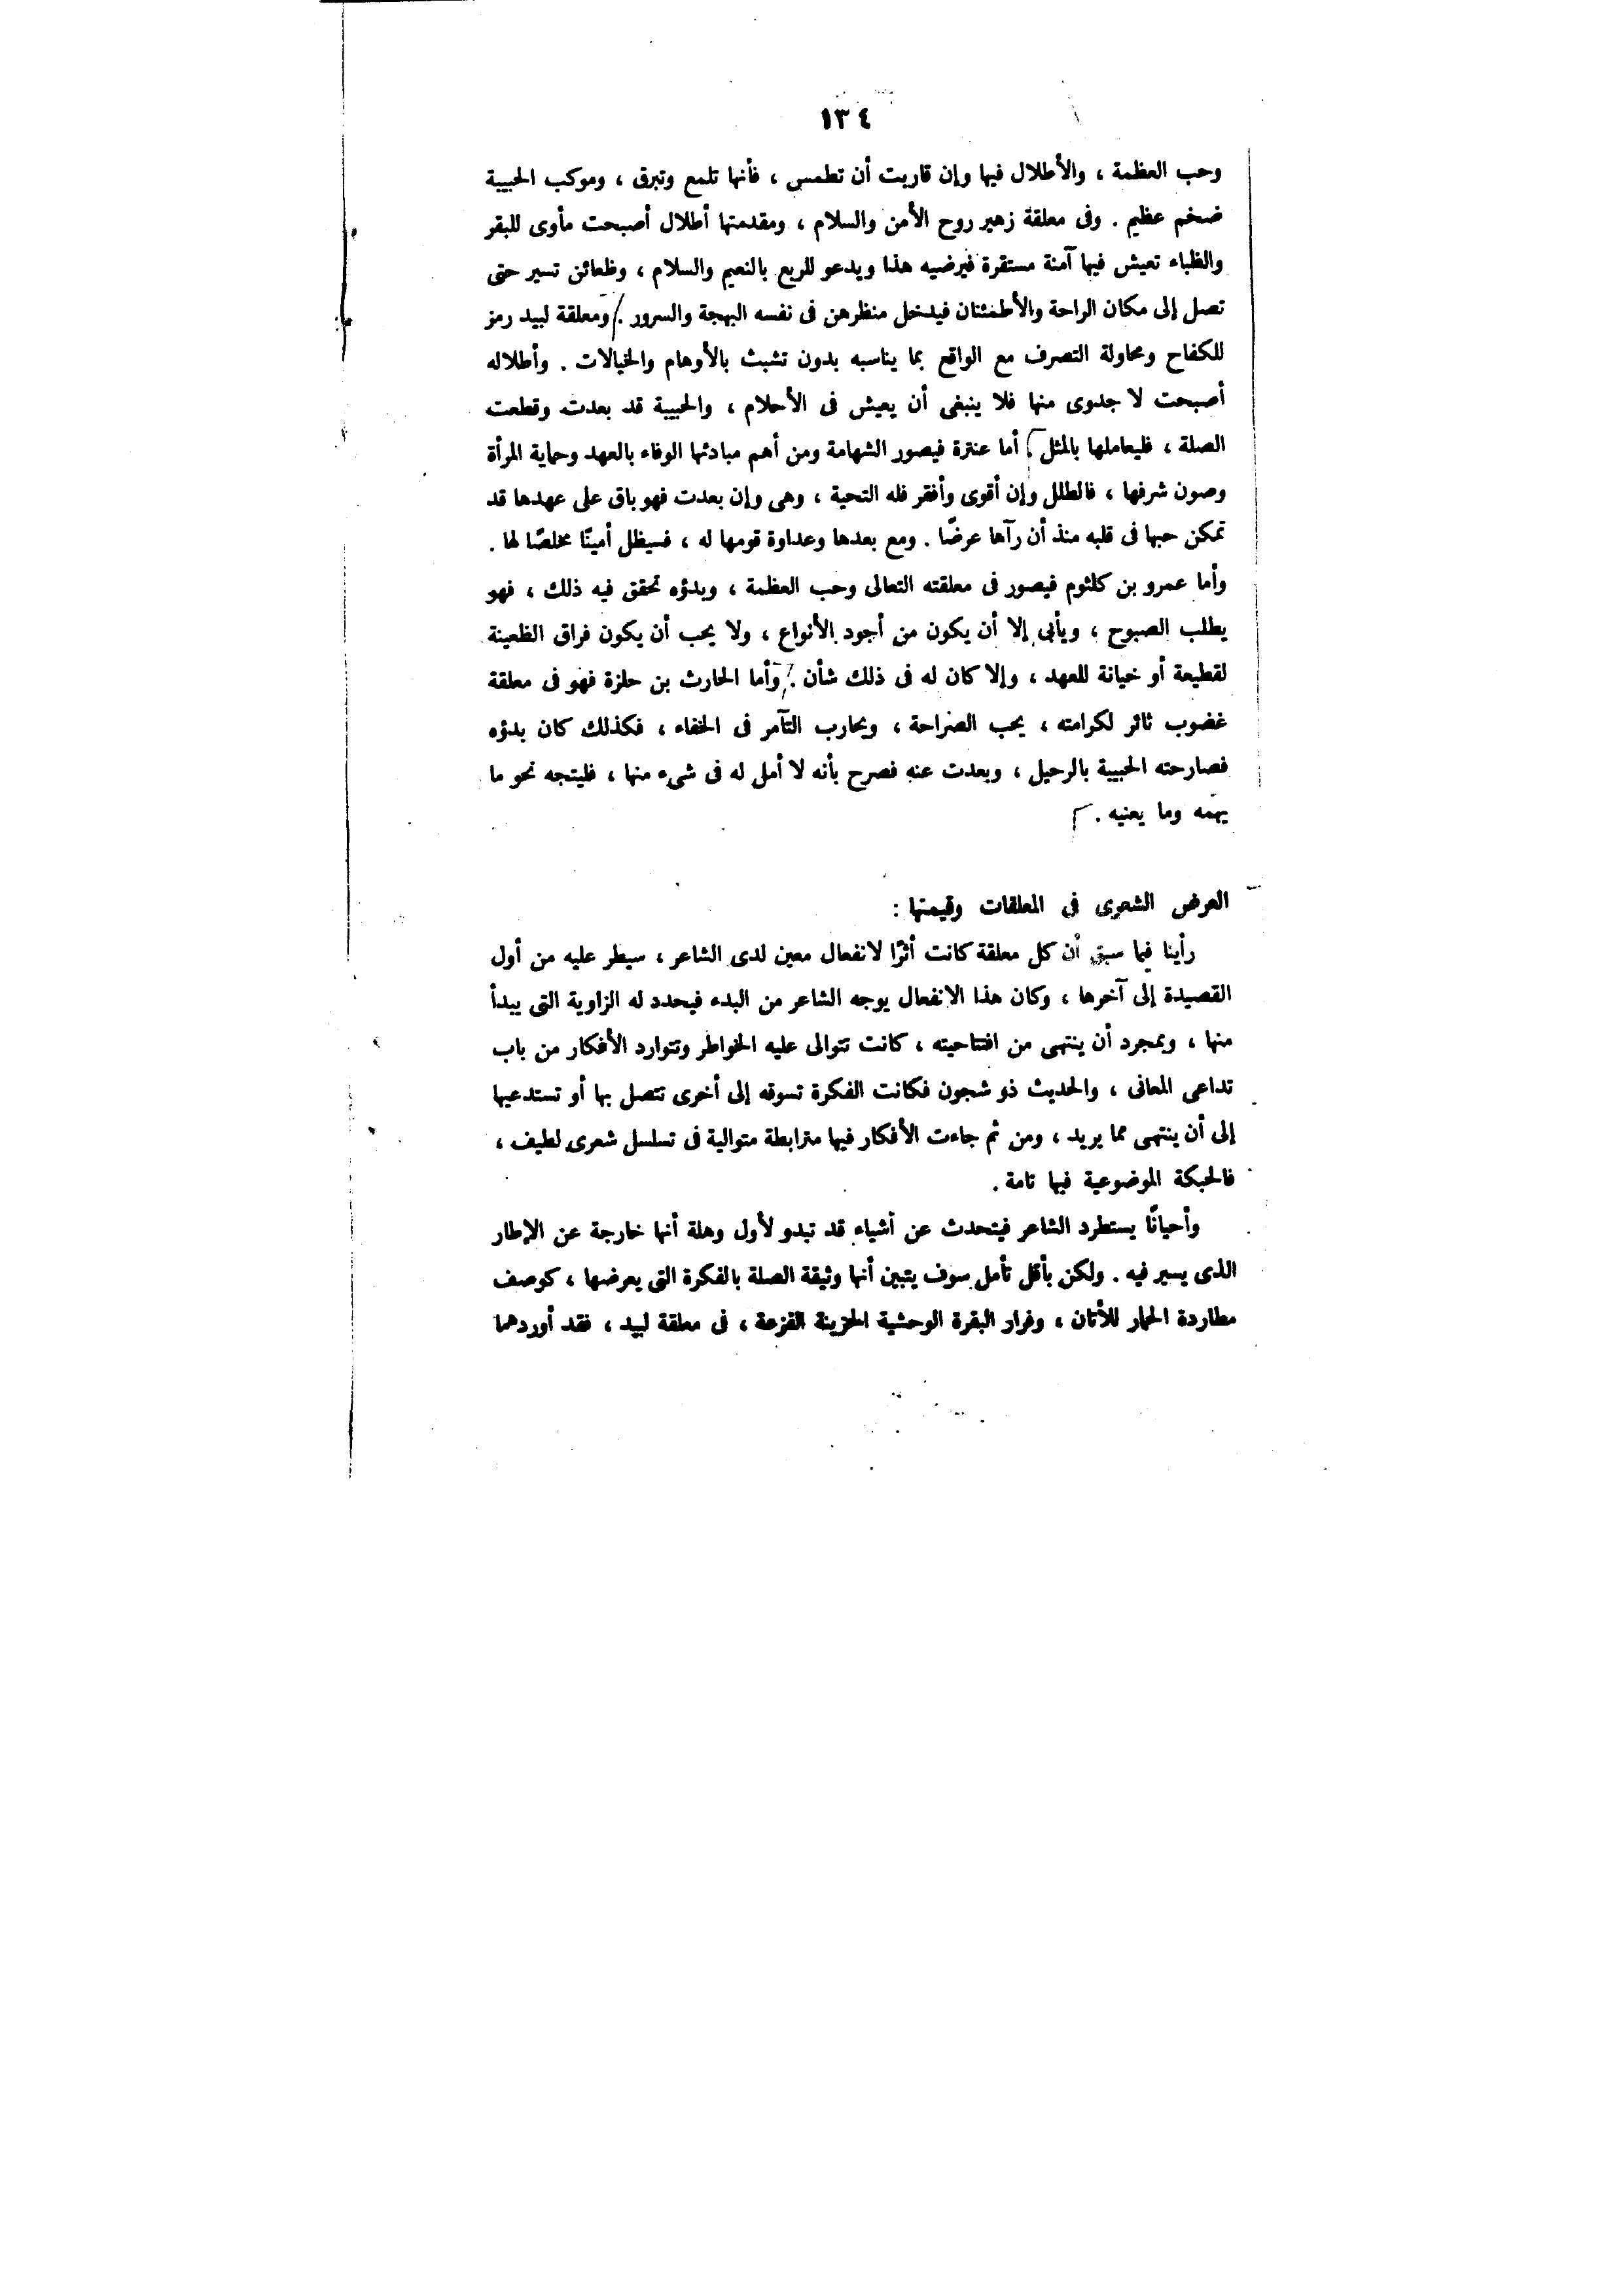 ١٣٤
وحب العظمة ، والأطلال فيها وإن قاربت أن تطمس ، فأنها تلمع وتبرق ، وموكب الحبيبة
ضخم عظيم . وفى معلقة زهير روح الأمن والسلام ، ومقدمتها أطلال أصبحت مأوى للبقر
والظباء تعيش فيها آمنة مستقرة فيرضيه هذا ويدعو للربع بالنعيم والسلام ، وظعائن تسير حتى
تصل إلى مكان الراحة والأطمئنان فيدخل منظرهن فى نفسه البهجة والسرور . ومعلقة لبيد رمز
للكفاح ومحاولة التصرف مع الواقع بما يناسبه بدون تشبث بالأوهام والخيالات . وأطلاله
أصبحت لا جدوى منها فلا ينبغى أن يعيش فى الأحلام ، والحبيبة قد بعدت وقطعت
الصلة ، فليعاملها بالمثل . أما عنترة فيصور الشهامة ومن أهم مبادئها الوفاء بالعهد وحماية المرأة
وصون شرفها ، فالطلل وإن أقوى وأفقر فله التحية ، وهى وإن بعدت فهو باق على عهدها قد
تمكن حبها فى قلبه منذ أن رآها عرضًا . ومع بعدها وعداوة قومها له ، فسيظل أمينًا مخلصًا لها .
وأما عمرو بن كلثوم فيصور فى معلقته التعالى وحب العظمة ، وبدؤه تحقق فيه ذلك ، فهو
يطلب الصبوح ، ويأبى إلا أن يكون من أجود الأنواع ، ولا يحب أن يكون فراق الظعينة
لقطيعة أو خيانة للعهد ، وإلا كان له فى ذلك شأن . وأما الحارث بن حلزة فهو فى معلقة
غضوب ثائر لكرامته ، يحب الصراحة ، ويحارب التآمر فى الخفاء ، فكذلك كان بدؤه
فصارحته الحبيبة بالرحيل ، وبعدت عنه فصرح بأنه لا أمل له فى شىء منها ، فليتجه نحو ما
يهمّه وما يعنيه .
العرض الشعرى فى المعلقات وقيمتها :
رأينا فيما سبق أن كل معلقة كانت أثرًا لانفعال معين لدى الشاعر ، سيطر عليه من أول
القصيدة إلى آخرها ، وكان هذا الانفعال يوجه الشاعر من البدء فيحدد له الزاوية التى يبدأ
منها ، وبمجرد أن ينتهى من افتتاحيته ، كانت تتوالى عليه الخواطر وتتوارد الأفكار من باب
تداعى المعانى ، والحديث ذو شجون فكانت الفكرة تسوقه إلى أخرى تتصل بها أو تستدعيها
إلى أن ينتهى مما يريد ، ومن ثم جاءت الأفكار فيها مترابطة متوالية فى تسلسل شعرى لطيف ،
فالحبكة الموضوعية فيها تامة .
وأحيانًا يستطرد الشاعر فيتحدث عن أشياء قد تبدو لأول وهلة أنها خارجة عن الإطار
الذى يسير فيه . ولكن بأقل تأمل سوف يتبين أنها وثيقة الصلة بالفكرة التى يعرضها ، كوصف
مطاردة الحمار للأتان ، وفرار البقرة الوحشية الحزينة الفزعة ، فى معلقة لبيد ، فقد أوردهما